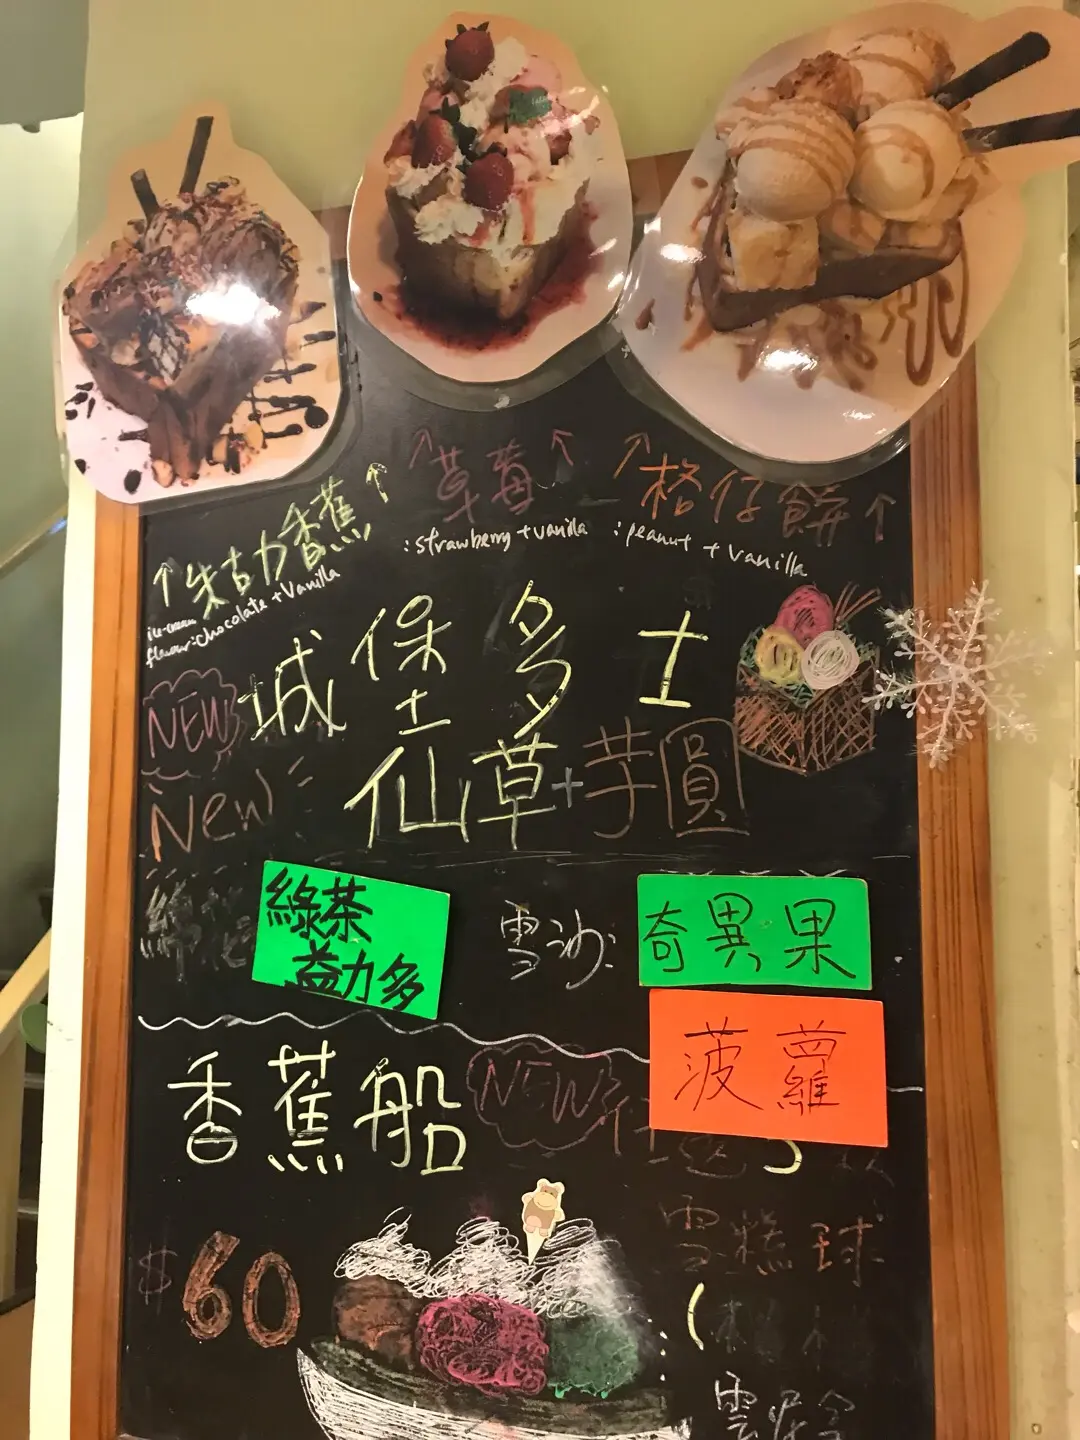 ↑草莓↑
↑格仔餅↑
:strawberry + vanilla
:peanut + vanilla
↑朱古力香蕉↑
ice-cream
flavour:chocolate + Vanilla
城堡多士
NEW
仙草+芋圓
New
綠茶
益力多
雪沙:
奇異果
菠蘿
香蕉船
NEW
任選3款
雪糕球
$60
(